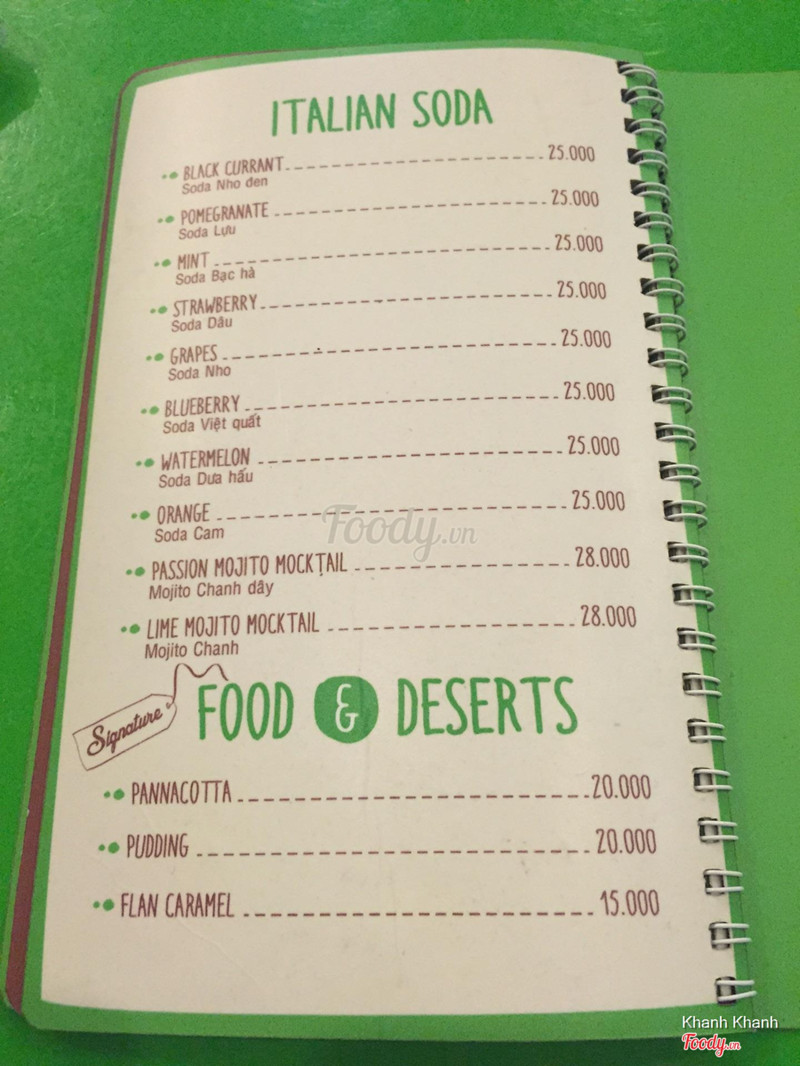 ITALIAN SODA
BLACK CURRANT 25.000
Soda Nho đen
POMEGRANATE 25.000
Soda Lựu
MINT 25.000
Soda Bạc hà
STRAWBERRY 25.000
Soda Dâu
GRAPES 25.000
Soda Nho
BLUEBERRY 25.000
Soda Việt quất
WATERMELON 25.000
Soda Dưa hấu
ORANGE 25.000
Soda Cam
Foody.vn
PASSION MOJITO MOCKTAIL 28.000
Mojito Chanh dây
LIME MOJITO MOCKTAIL 28.000
Mojito Chanh
Signature
FOOD & DESERTS
PANNACOTTA 20.000
PUDDING 20.000
FLAN CARAMEL 15.000
Khanh Khanh
Foody.vn